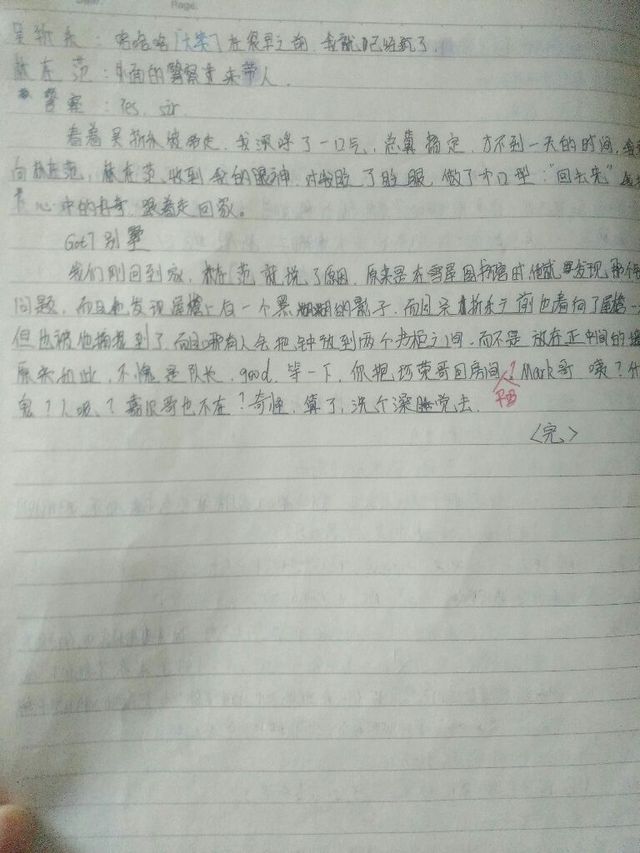 Page.
吴折永：哈哈哈[大笑]在很早之前，我就已经疯了．
林在范：外面的警察重来带人．
警察：Yes, sir
看着吴折永被带走，我深呼了一口气，总算搞定，方不到一天的时间，
向林在范，林在范收到我的眼神，对我眨了眨眼，做了个口型："回去先"
心中的好奇，跟着走回家．
Got7别墅
我们刚回到家，林在范就说了原因，原来是在雪屋图书馆时他就发现那个
问题，而且他发现屋檐上有一个黑湖湖的影子，而且吴折永之前也看向了屋檐
但也被他捕捉到了，而且哪有人会把钟放到两个书柜之间，而不是放在正中间的墙
原来如此，不愧是队长，good．等一下，你把珍荣哥回房间？Mark哥咦？什
鬼？人呢？嘉尔哥也不在？奇怪，算了，洗个澡睡觉去．
<完>